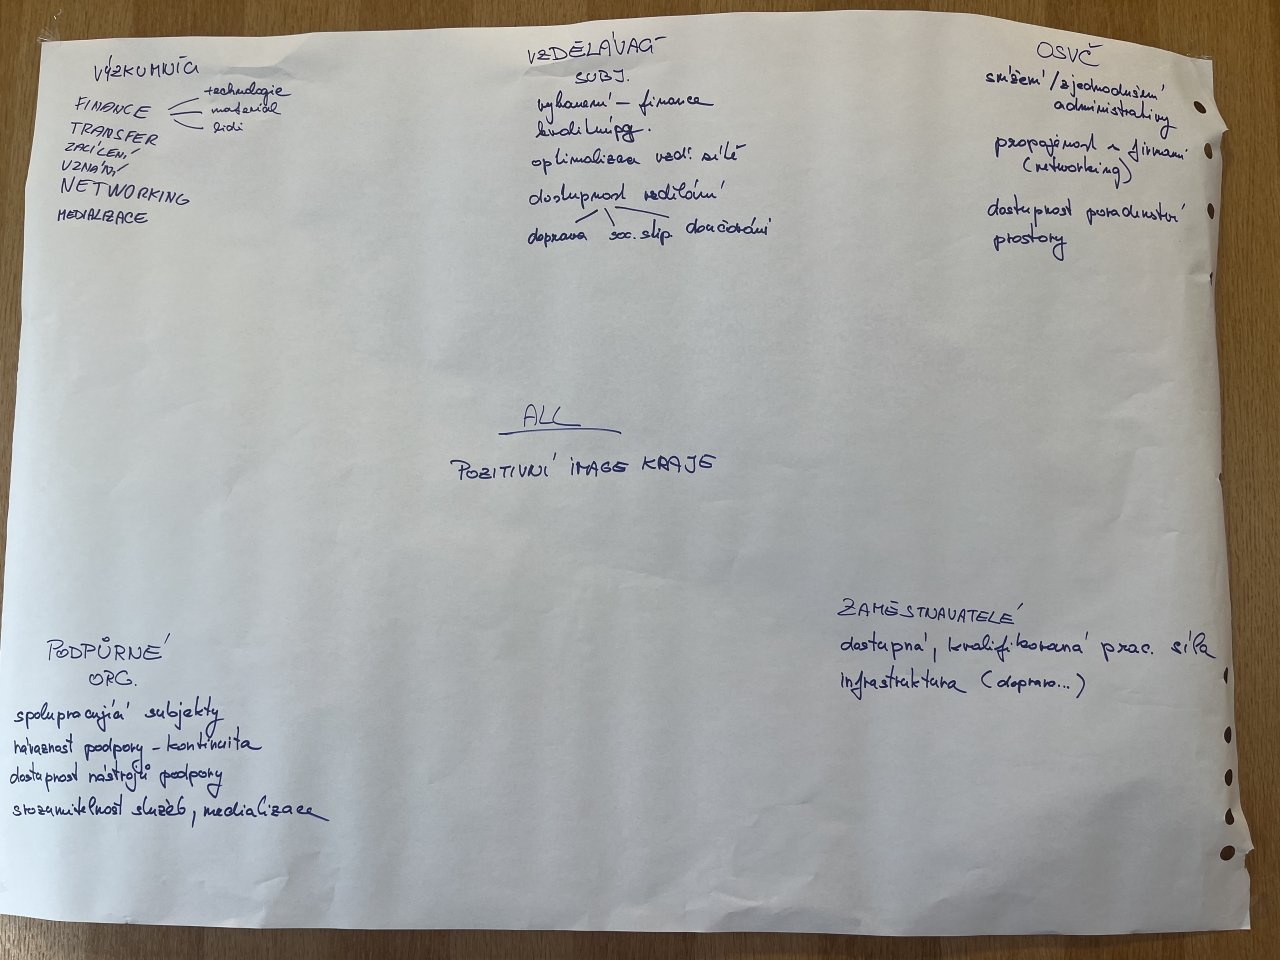 VÝZKUMNÍCI
FINANCE
technologie
material
lidi
TRANSFER
ZACÍLENÍ
UZNÁNÍ
NETWORKING
MEDIALIZACE
VZDĚLÁVACÍ
SUBJ.
vybavení – finance
kvalitní pg.
optimalizace vzdl. sítě
dostupnost vzdělání
doprava soc. stip. doučování
OSVČ
snížení / zjednodušení
administrativy
propojenost s firmami
(networking)
dostupnost poradenství
prostory
ALL
POZITIVNÍ IMAGE KRAJE
PODPŮRNÉ
ORG.
spolupracující subjekty
návaznost podpory – kontinuita
dostupnost nástrojů podpory
srozumitelnost služeb, medializace
ZAMĚSTNAVATELÉ
dostupná, kvalifikovaná prac. síla
infrastruktura (doprava...)